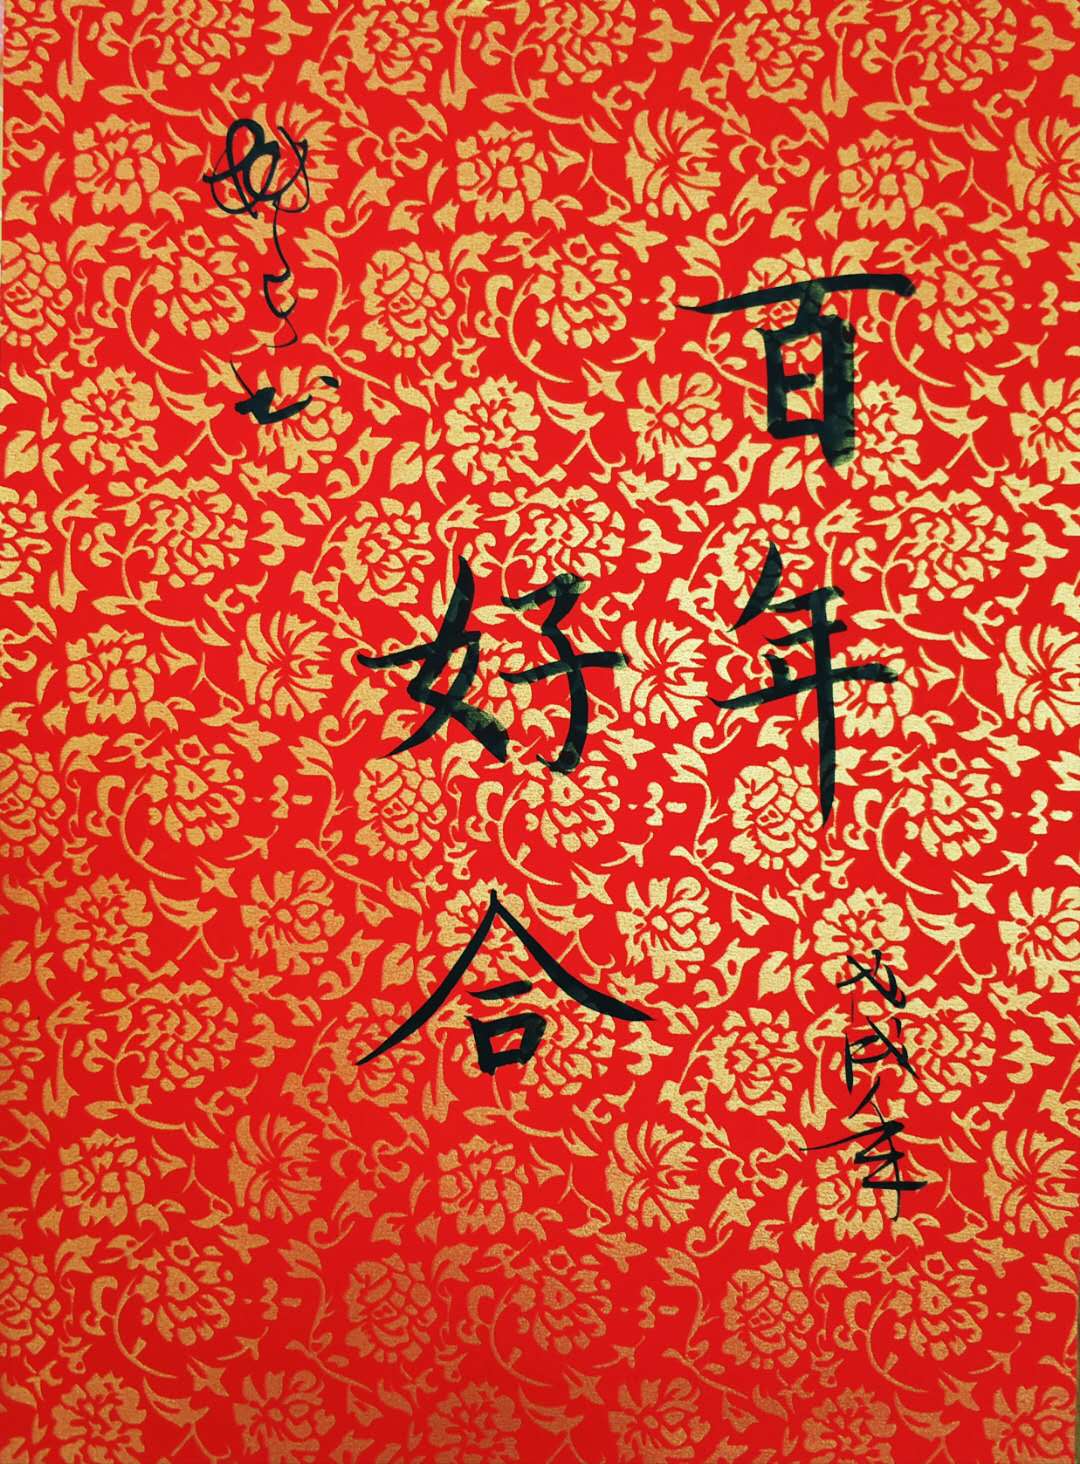 百年
好合
戊戌年